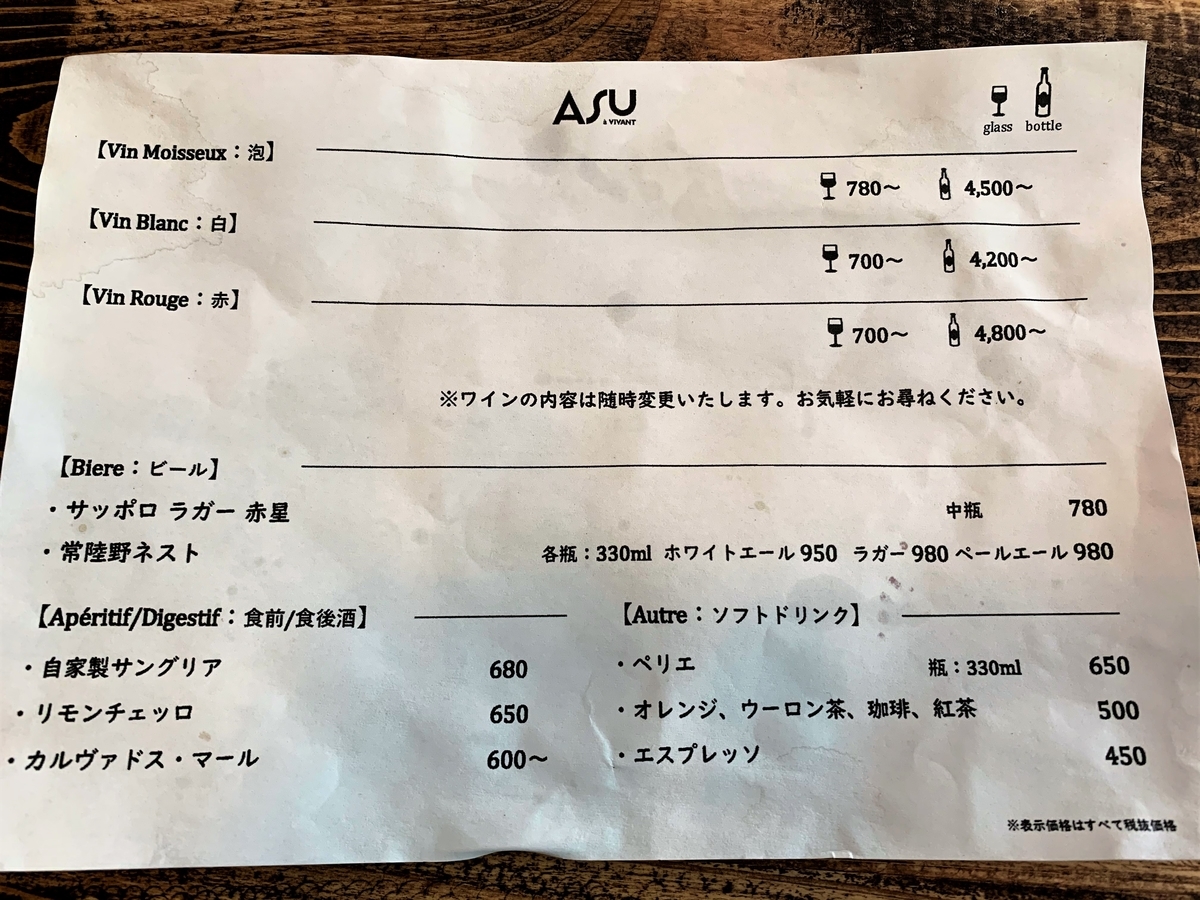 ASU
à VIVANT
glass bottle
【Vin Moisseux：泡】
780〜 4,500〜
【Vin Blanc：白】
700〜 4,200〜
【Vin Rouge：赤】
700〜 4,800〜
※ワインの内容は随時変更いたします。お気軽にお尋ねください。
【Biere：ビール】
・サッポロ ラガー 赤星 中瓶 780
・常陸野ネスト 各瓶：330ml ホワイトエール 950 ラガー 980 ペールエール 980
【Apéritif/Digestif：食前/食後酒】
・自家製サングリア 680
・リモンチェッロ 650
・カルヴァドス・マール 600〜
【Autre：ソフトドリンク】
・ペリエ 瓶：330ml 650
・オレンジ、ウーロン茶、珈琲、紅茶 500
・エスプレッソ 450
※表示価格はすべて税抜価格